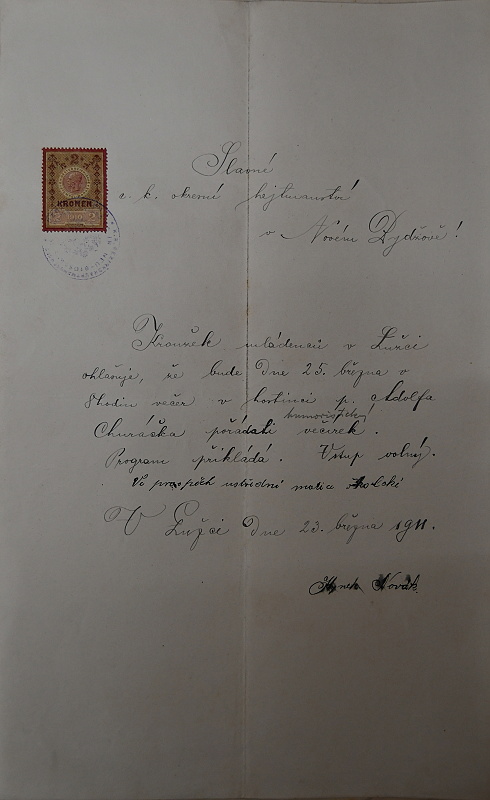 2
KRONEN
2 1910 2
Slavné
c. k. okresní hejtmanství
v Novém Bydžově!
Kroužek mládenců v Lužci
ohlašuje, že bude dne 25. března v
8 hodin večer v hostinci p. Adolfa
humoristický
Churáčka pořádati večírek.
Program přikládá. Vstup volný.
Ve prospěch ústřední matice školské
V Lužci dne 23. března 1911.
Hynek Novák